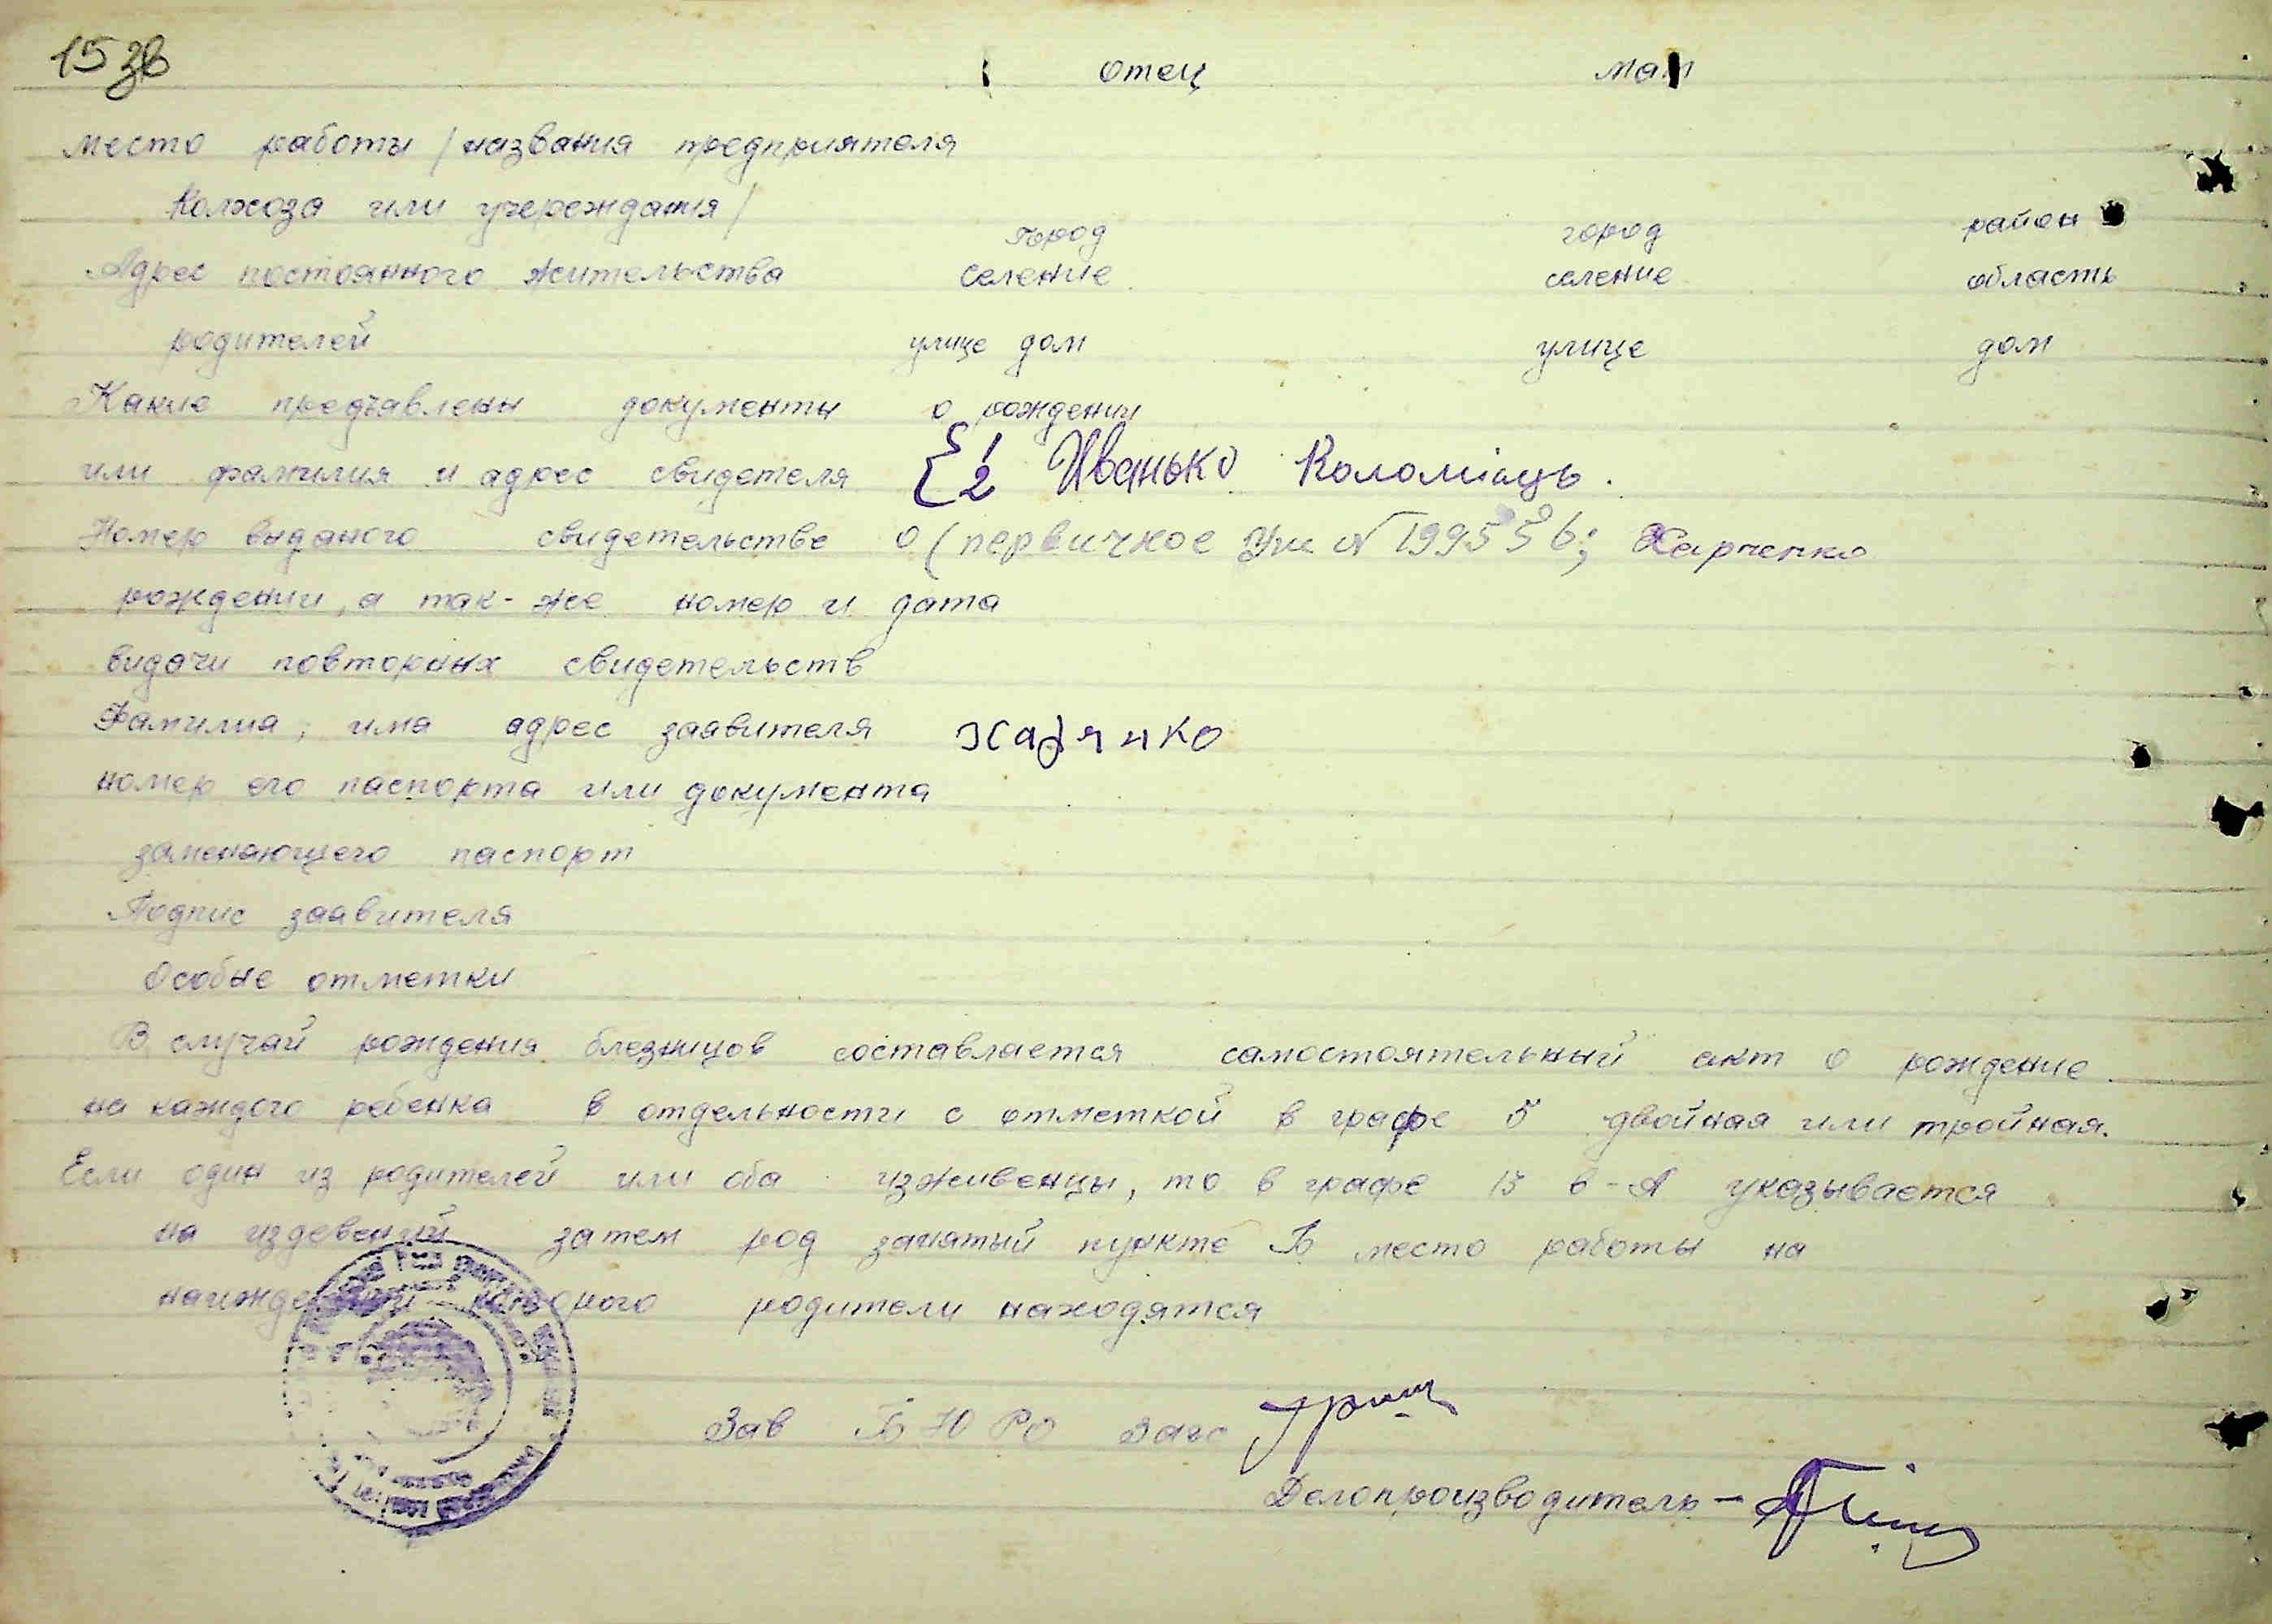 15 зв
отец мат
место работы / названия предприятеля
Колхоза или учереждания /
город город район
Адрес постоянного жительства селение селение область
родителей улице дом улице дом
Какие предъавлены документы о рождении
или фамилия и адрес свидетеля { 1 2 Иванько Коломіаць.
Номер выданого свидетельстве о (первичное Уж N 199556; Харченко
рождении, а так-же номер и дата
видачи повторных свидетельств
Фамилиа, има адрес заавителя Харчнко
номер его паспорта или документа
заменающего паспорт
Подпис заавителя
Особые отметки
В случай рождения блезницов составлается самостоятельный акт о рождение
на каждого ребенка в отдельности с отметкой в графе 5 двойная или тройная.
Если один из родителей или оба изживенцы, то в графе 15 в-А указывается
на издевений затем род занятый пункте Б место работы на
которого родители находятся
Зав БЮРО загс
Делопроизводитель -